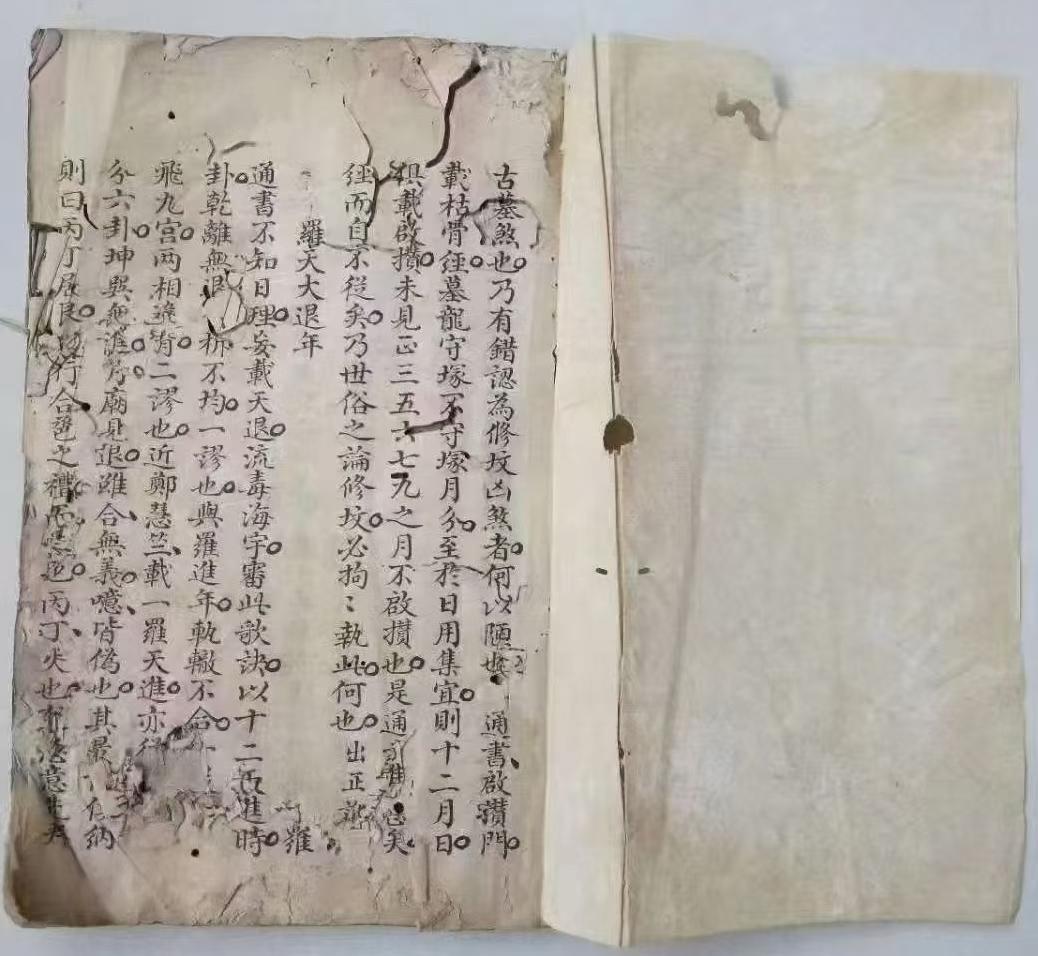 古墓煞也乃有錯認為修坟凶煞者何以陋也 通書啟攢門
載枯骨經墓龍守塚不守塚月分至於日用集宜則十二月日
俱載啟攢未見正三五六七九之月不啟攢也是通矣
經而自不從矣乃世俗之論修坟必拘〻執此何也 出正
羅天大退年 羅
通書不知日理妄載天退流毒海宇審此歌訣以十二进時
卦乾離無退 不均一謬也與羅進年軌轍不合
飛九宮两相違背二謬也近鄭慧竺載一羅天進亦
分六卦坤巽無進 廟見退雖合無義噫皆偽也其最 納
則曰丙丁居艮 行合邑之禮而 邑丙丁火也 意